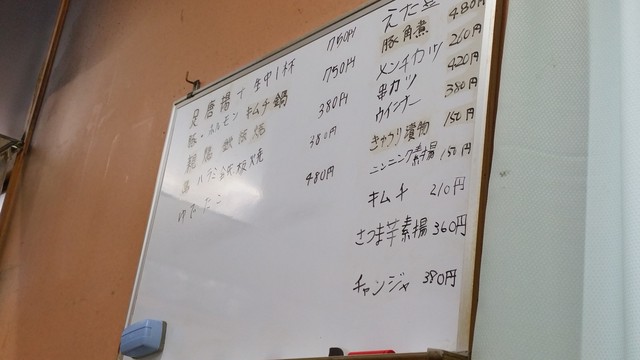 唐揚+生中1杯 750円
豚・ホルモンキムチ鍋 750円
鉄板焼 380円
ハラミ鉄板焼 380円
ゆでだこ 480円
えだ豆
豚角煮 480円
メンチカツ 260円
串カツ 420円
ウインナー 380円
きゅうり漬物 150円
ニンニク素揚 150円
キムチ 210円
さつま芋素揚 360円
チャンジャ 380円